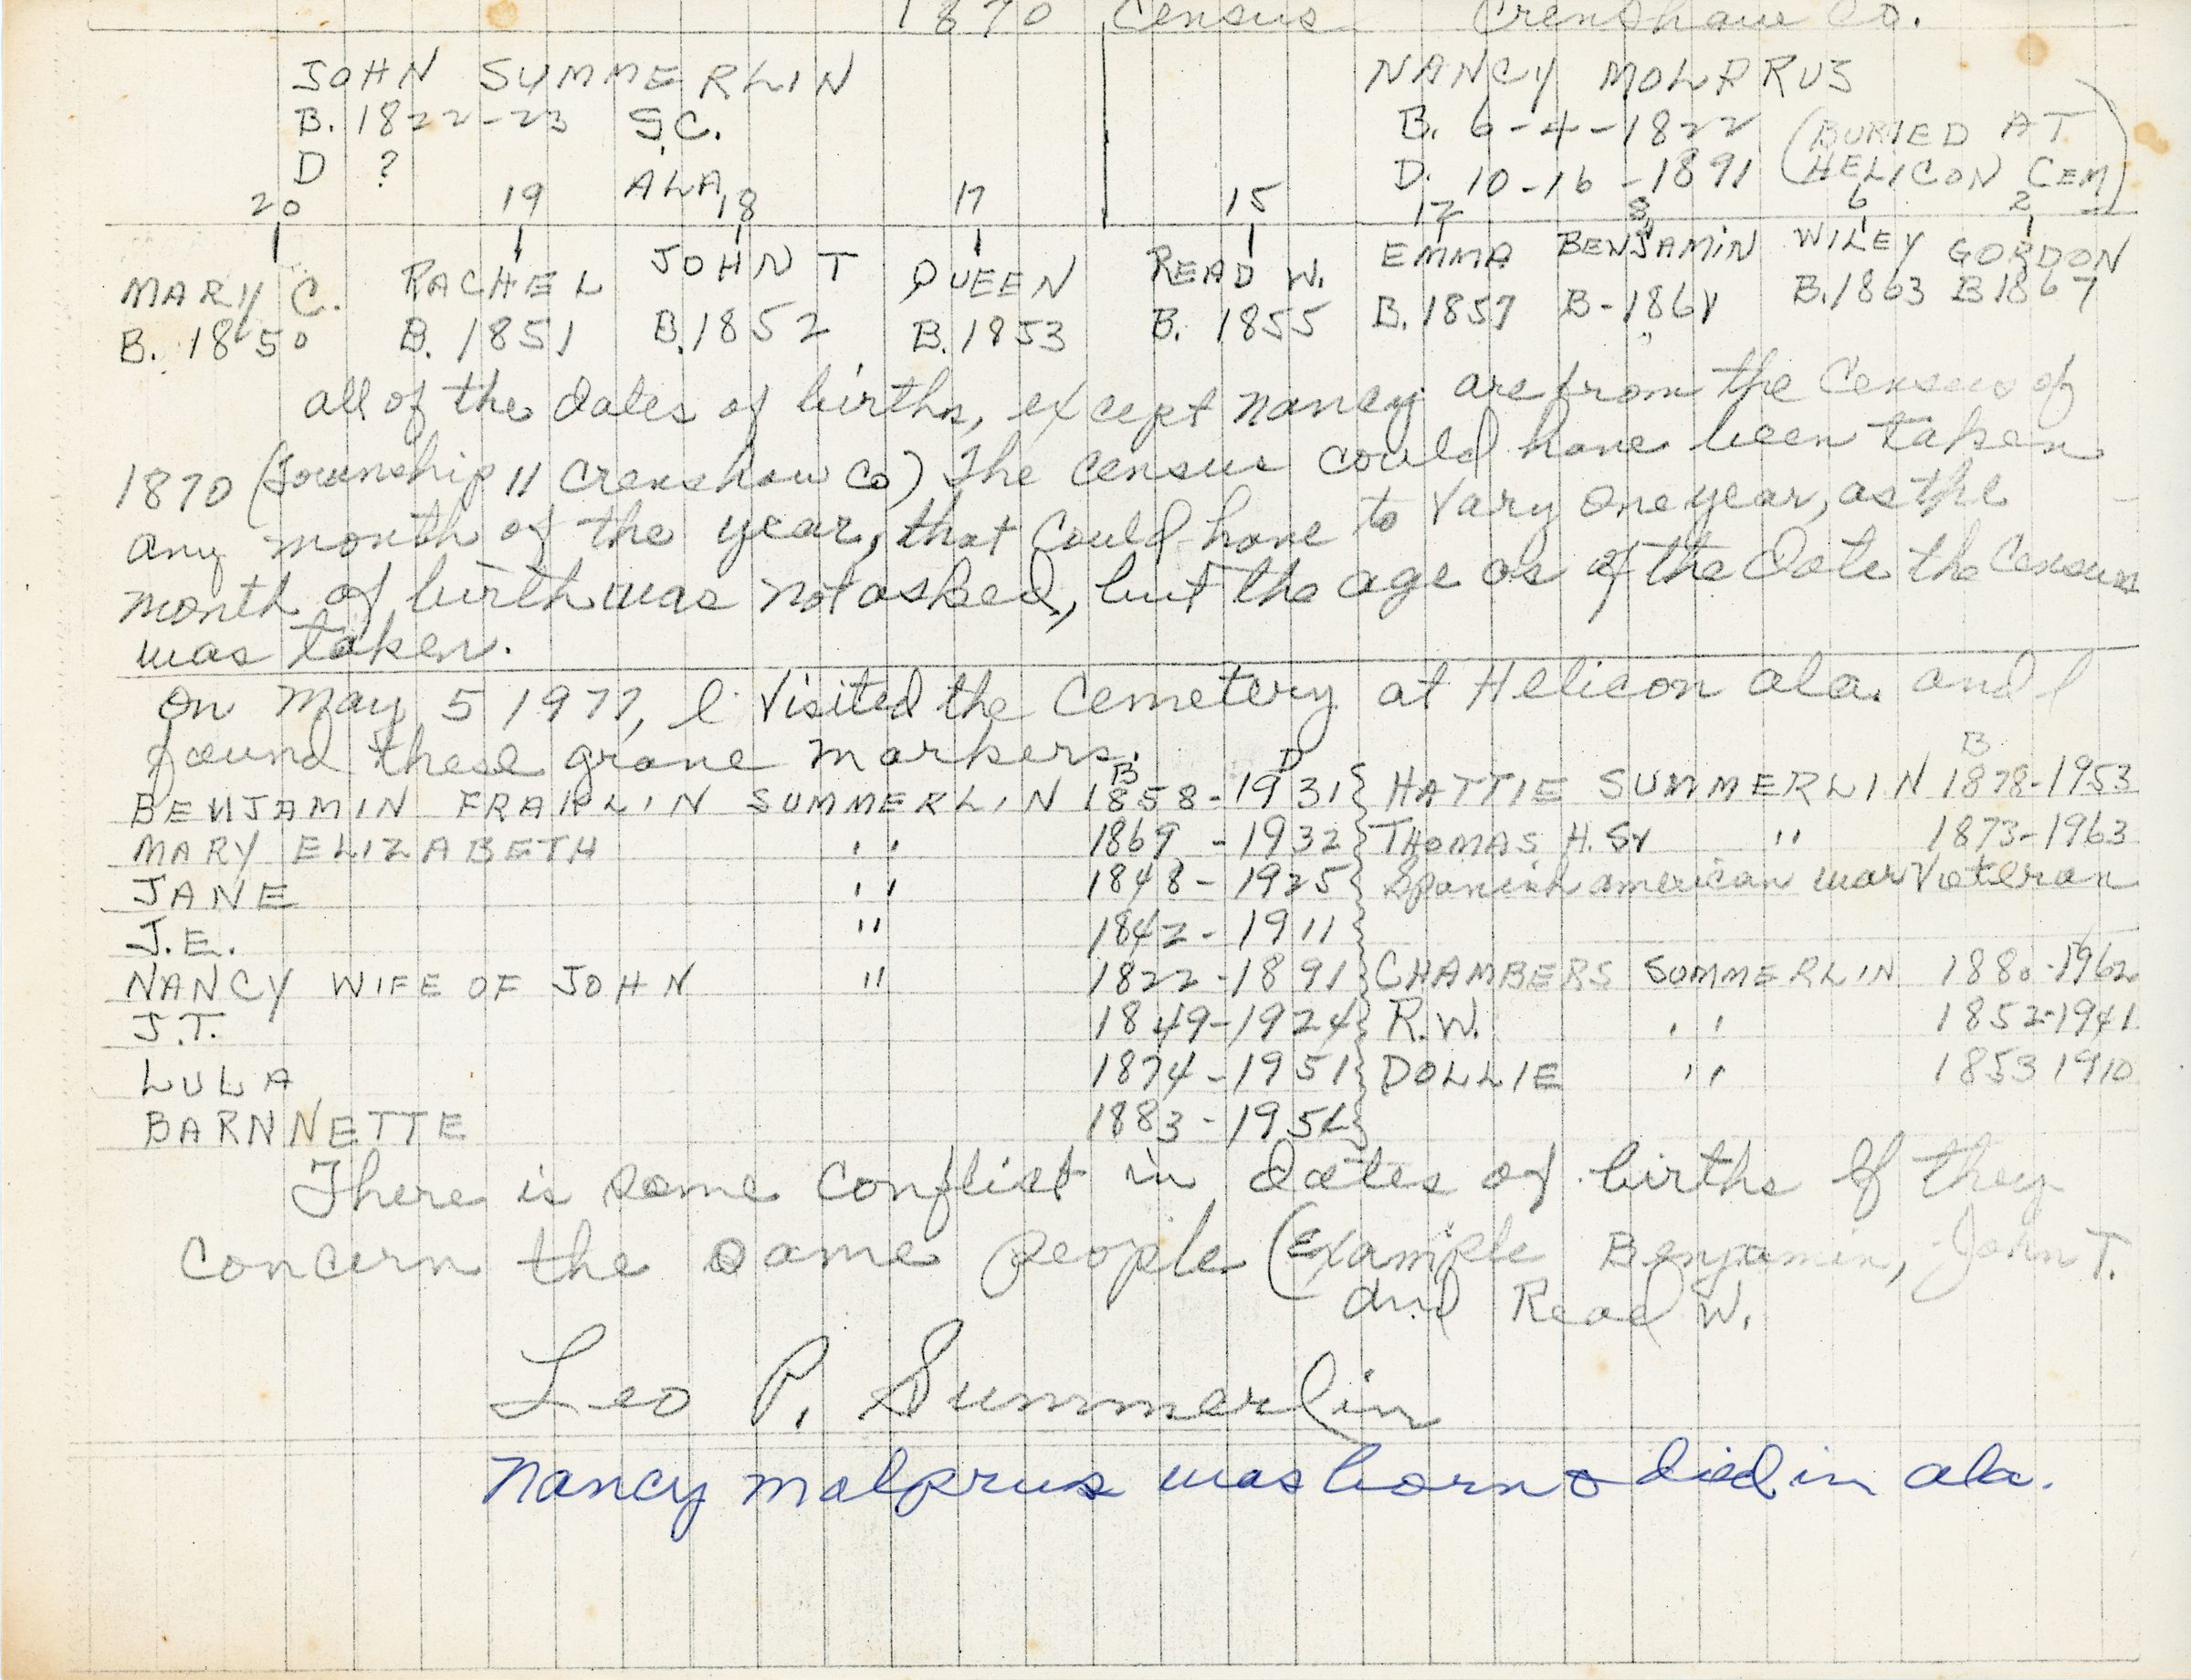 1870 Census Crenshaw Co.
JOHN SUMMERLIN NANCY MOLPRUS
B. 1822-23 S.C. B. 6-4-1822 (BURIED AT
D ? ALA, D. 10-16-1891 HELICON CEM)
20 19 18 17 15 12 8 6 2
MARY C. RACHEL JOHN T QUEEN READ W. EMMA BENJAMIN WILEY GORDON
B. 1850 B. 1851 B. 1852 B. 1853 B. 1855 B. 1857 B-1861 B. 1863 B 1867
all of the dates of births, except Nancy are from the Census of
1870 (Township 11 Crenshaw Co) The Census could have been taken
any month of the year, that could have to vary one year, as the
month of birth was not asked, but the age as of the date the Census
was taken.
On May 5 1977, I visited the Cemetery at Helicon ala. and I
found these grave markers.
B D B
BENJAMIN FRAKLIN SUMMERLIN 1858-1931 HATTIE SUMMERLIN 1878-1953
MARY ELIZABETH " 1869-1932 THOMAS H. Sr " 1873-1963
JANE " 1848-1925 Spanish american war Veteran
J.E. " 1842-1911
NANCY WIFE OF JOHN " 1822-1891 CHAMBERS SUMMERLIN 1880-1962
J.T. 1849-1924 R.W. " 1852-1941
LULA 1874-1951 DOLLIE " 1853 1910
BARNNETTE 1883-195
There is some conflict in dates of births If they
concern the same people (Example Benjamin, John T.
and Read W.
Leo P. Summerlin
Nancy malprus was born & died in ala.